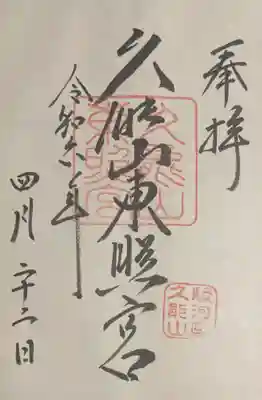 奉拝
久能山東照宮
令和六年
四月二十二日
駿河国
久能山